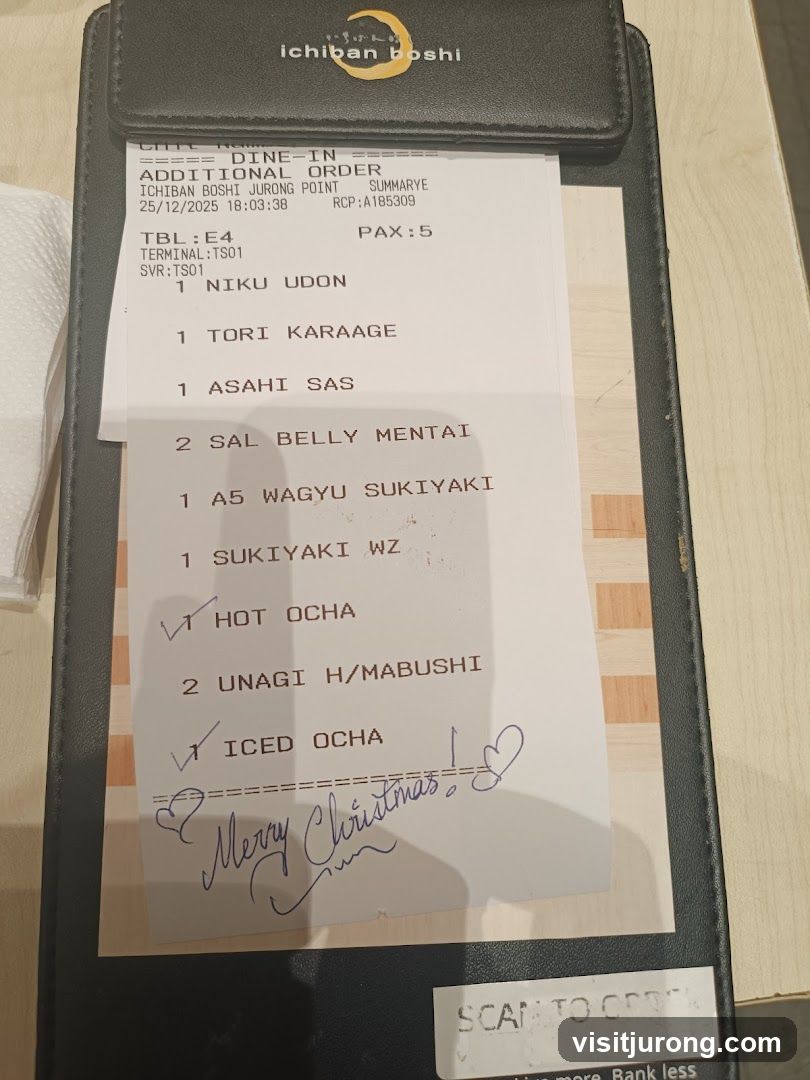 ichiban boshi
===== DINE-IN ======
ADDITIONAL ORDER
ICHIBAN BOSHI JURONG POINT SUMMARYE
25/12/2025 18:03:38 RCP:A185309
TBL:E4 PAX:5
TERMINAL:TS01
SVR:TS01
1 NIKU UDON
1 TORI KARAAGE
1 ASAHI SAS
2 SAL BELLY MENTAI
1 A5 WAGYU SUKIYAKI
1 SUKIYAKI WZ
1 HOT OCHA
2 UNAGI H/MABUSHI
1 ICED OCHA
Merry Christmas!
SCAN TO ORDER
more. Bank less
visitjurong.com